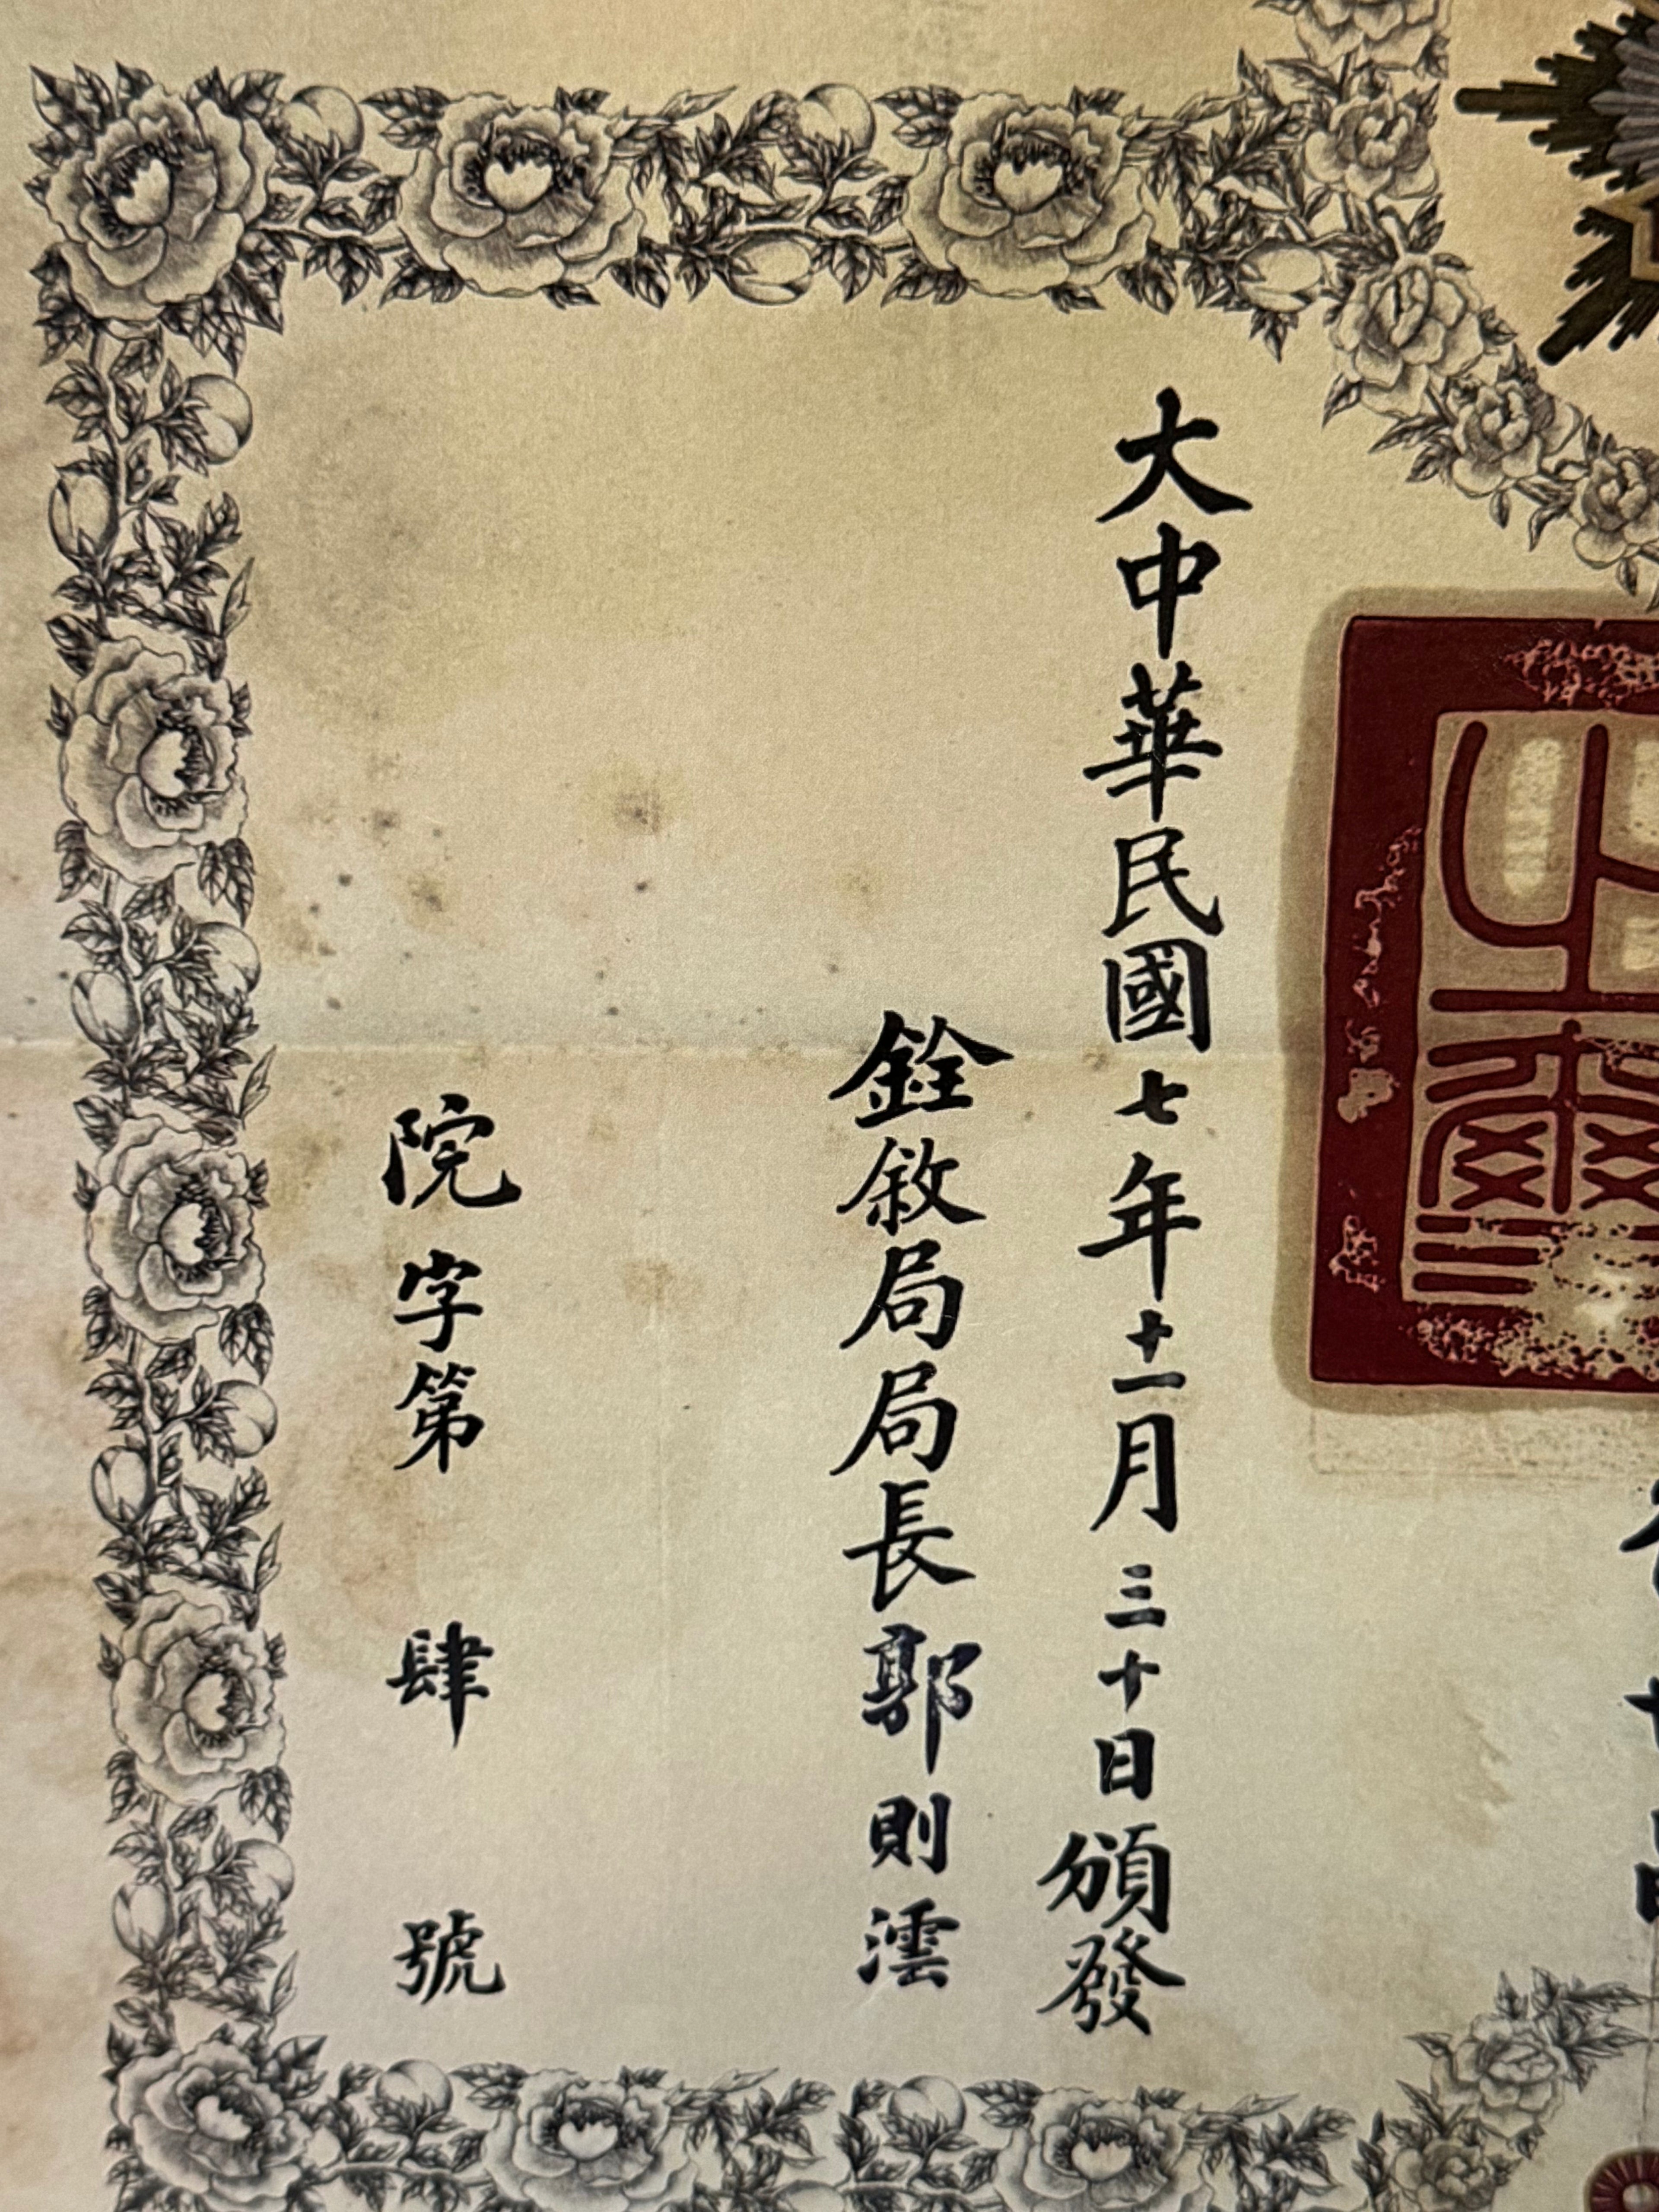 大中華民國七年十一月三十日頒發
銓敘局局長郭則澐
院字第肆號